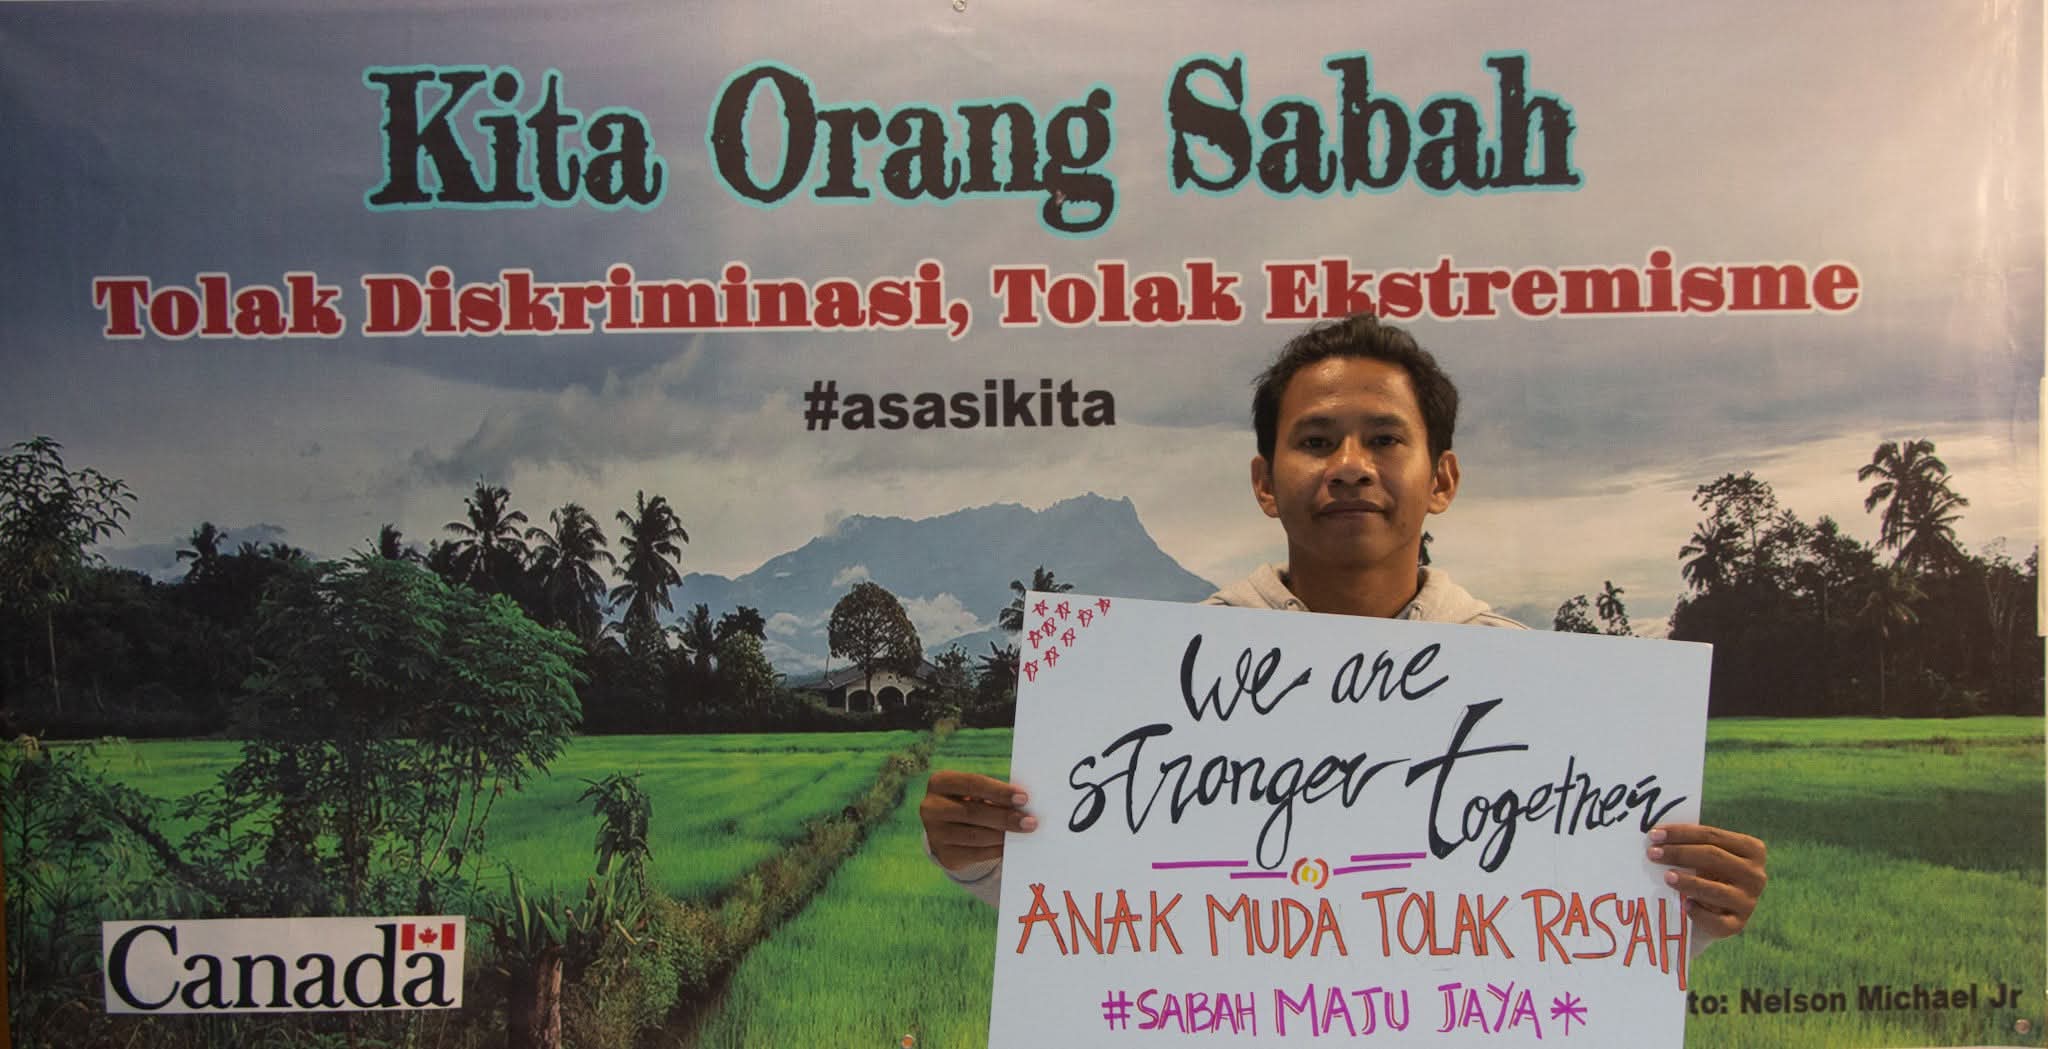 Kita Orang Sabah
Tolak Diskriminasi, Tolak Ekstremisme
#asasikita
We are
stronger together
ANAK MUDA TOLAK RASUAH
#SABAH MAJU JAYA*
Canada
to: Nelson Michael Jr